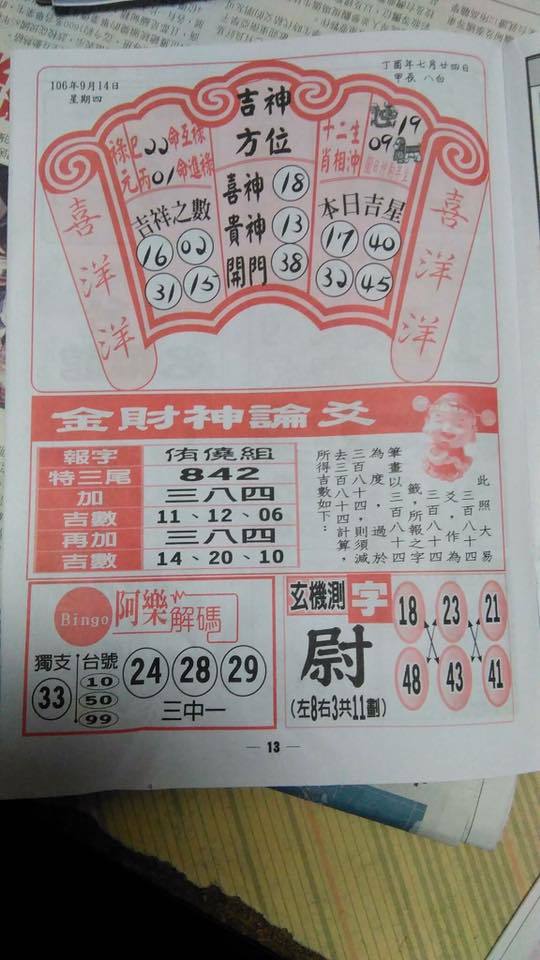 106年9月14日
星期四
丁酉年七月廿四日
甲辰 八白
吉神
方位
喜神 18
貴神 13
開門 38
祿巳00命互祿
元丙01命進祿
吉祥之數
16 02
31 15
十二生
肖相沖
19
09
本日吉星
17 40
32 45
喜洋洋
喜洋洋
金財神論爻
報字 侑僥組
特三尾 842
加 三八四
吉數 11、12、06
再加 三八四
吉數 14、20、10
此照大易
三百八十四
爻,作為
三百八十四
籤,所報之字
筆畫以三百八十四
為度,過於
三百八十四,則須減
去三百八十四計算,
所得吉數如下:
Bingo 阿樂解碼
獨支 台號
33
10
50
99
24 28 29
三中一
玄機測字
尉
(左8右3共11劃)
18 23 21
48 43 41
— 13 —